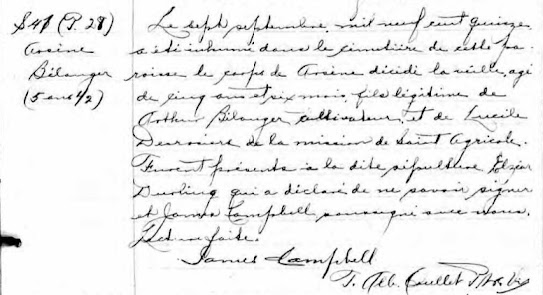 S41 (P. 28)
Arsène
Bélanger
(5 ans 1/2)
Le sept septembre, mil neuf cent quinze
a été inhumé dans le cimetière de cette pa-
roisse le corps de Arsène décédé la veille, agé
de cinq ans et six mois, fils légitime de
Arthur Bélanger cultivateur, et de Lucile
Desrosiers de la mission de Saint Agricole.
Furent présents à la dite sépulture
qui a déclaré ne savoir signer
et James Campbell soussigné avec nous.
Lecture faite.
James Campbell
Ouellet Ptre